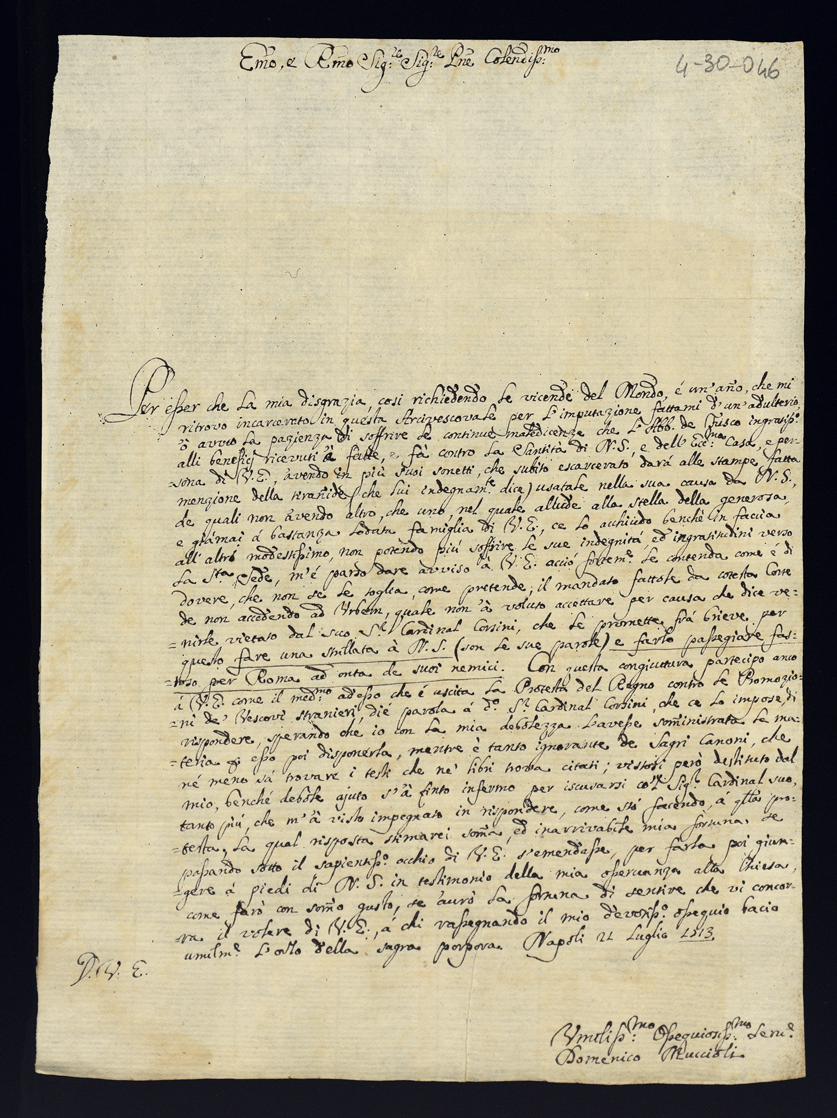 Emo, e Rmo Sig:re Sig:re Pne Colendiss:mo
4-30-046
Per esser che la mia disgrazia, così richiedendo le vicende del Mondo, é un'año, che mi
ritrovo incarcerato in questa Arcivescovale per l'imputazione fattami d'un'adulterio,
ò avuto la pazienza di soffrire le continue maldicenze che l'Abb. de Chisco ingratiss:o
alli beneficj ricevuti à fatte, e fà contro la Santità di N.S., e dell' Ecc:ma Casa, e per-
=sona di V.E., avendo in più suoi sonetti, che subito escarcerato darà alle stampe, fatta
menzione della tirañide (che lui indegnam:e dice) usatale nella sua causa da N.S.,
de quali non avendo altro, che uno, nel quale allude alla stella della generosa,
e giámai á bastanza lodata famiglia di V.E., ce lo acchiudo benché in faccia
all' altro modestissimo, non potendo più soffrire le sue indegnitá ed ingratitudini verso
la Sta Sede, m'é parso dare avviso à V.E. acció fortem:e le contenda come é di
dovere, che non se le toglia, come pretende, il mandato fattole da cotesta Corte
de non accedendo ad Urbem, quale non à voluto accettare per causa che dice ve-
=nirle vietato dal suo Sr Cardinal Corsini, che le promette frá brieve per
questo fare una spillata à N.S. (son le sue parole) e farlo passegiare fas-
=toso per Roma ad onta de suoi nemici. Con questa congiuntura partecipo anco
á V.E. come il med:mo adesso che é uscita la Protesta del Regno contro le Promozio-
=ni de' Vescovi stranieri, dié parola á do. Sr Cardinal Corsini, che ce lo impose, di
rispondere, sperando che io con la mia debolezza l'avesse soministrata le ma-
=teria esso poi disponerla, mentre è tanto ignorante de Sagri Canoni, che
né meno sá trovare i testi che ne' libri trova citati; vistosi peró destituto dal
mio, benché debole ajuto s'à finto infermo per iscusarsi col Sig:r Cardinal suo,
tanto più, che m'à visto impegnato in rispondere, come stó facendo, a qsta pro-
=testa, la qual risposta stimarei soma, ed inarrivabile mia fortuna se
passando sotto il sapientiss:o occhio di V.E. s'emendasse, per farla poi giun-
=gere á piedi di N.S. in testimonio della mia osservanza alla Chiesa,
come faró con somo gusto, se auró la fortuna di sentire che vi concor-
ra il volere di V.E., á chi rassegnando il mio devotiss:o ossequio bacio
umilm:e l'orlo della sagra porpora. Napoli 21 Luglio 1713.
D. V. E.
Vmoliss:mo Ossequiosiss:mo Seru:e
Domenico Muccioli